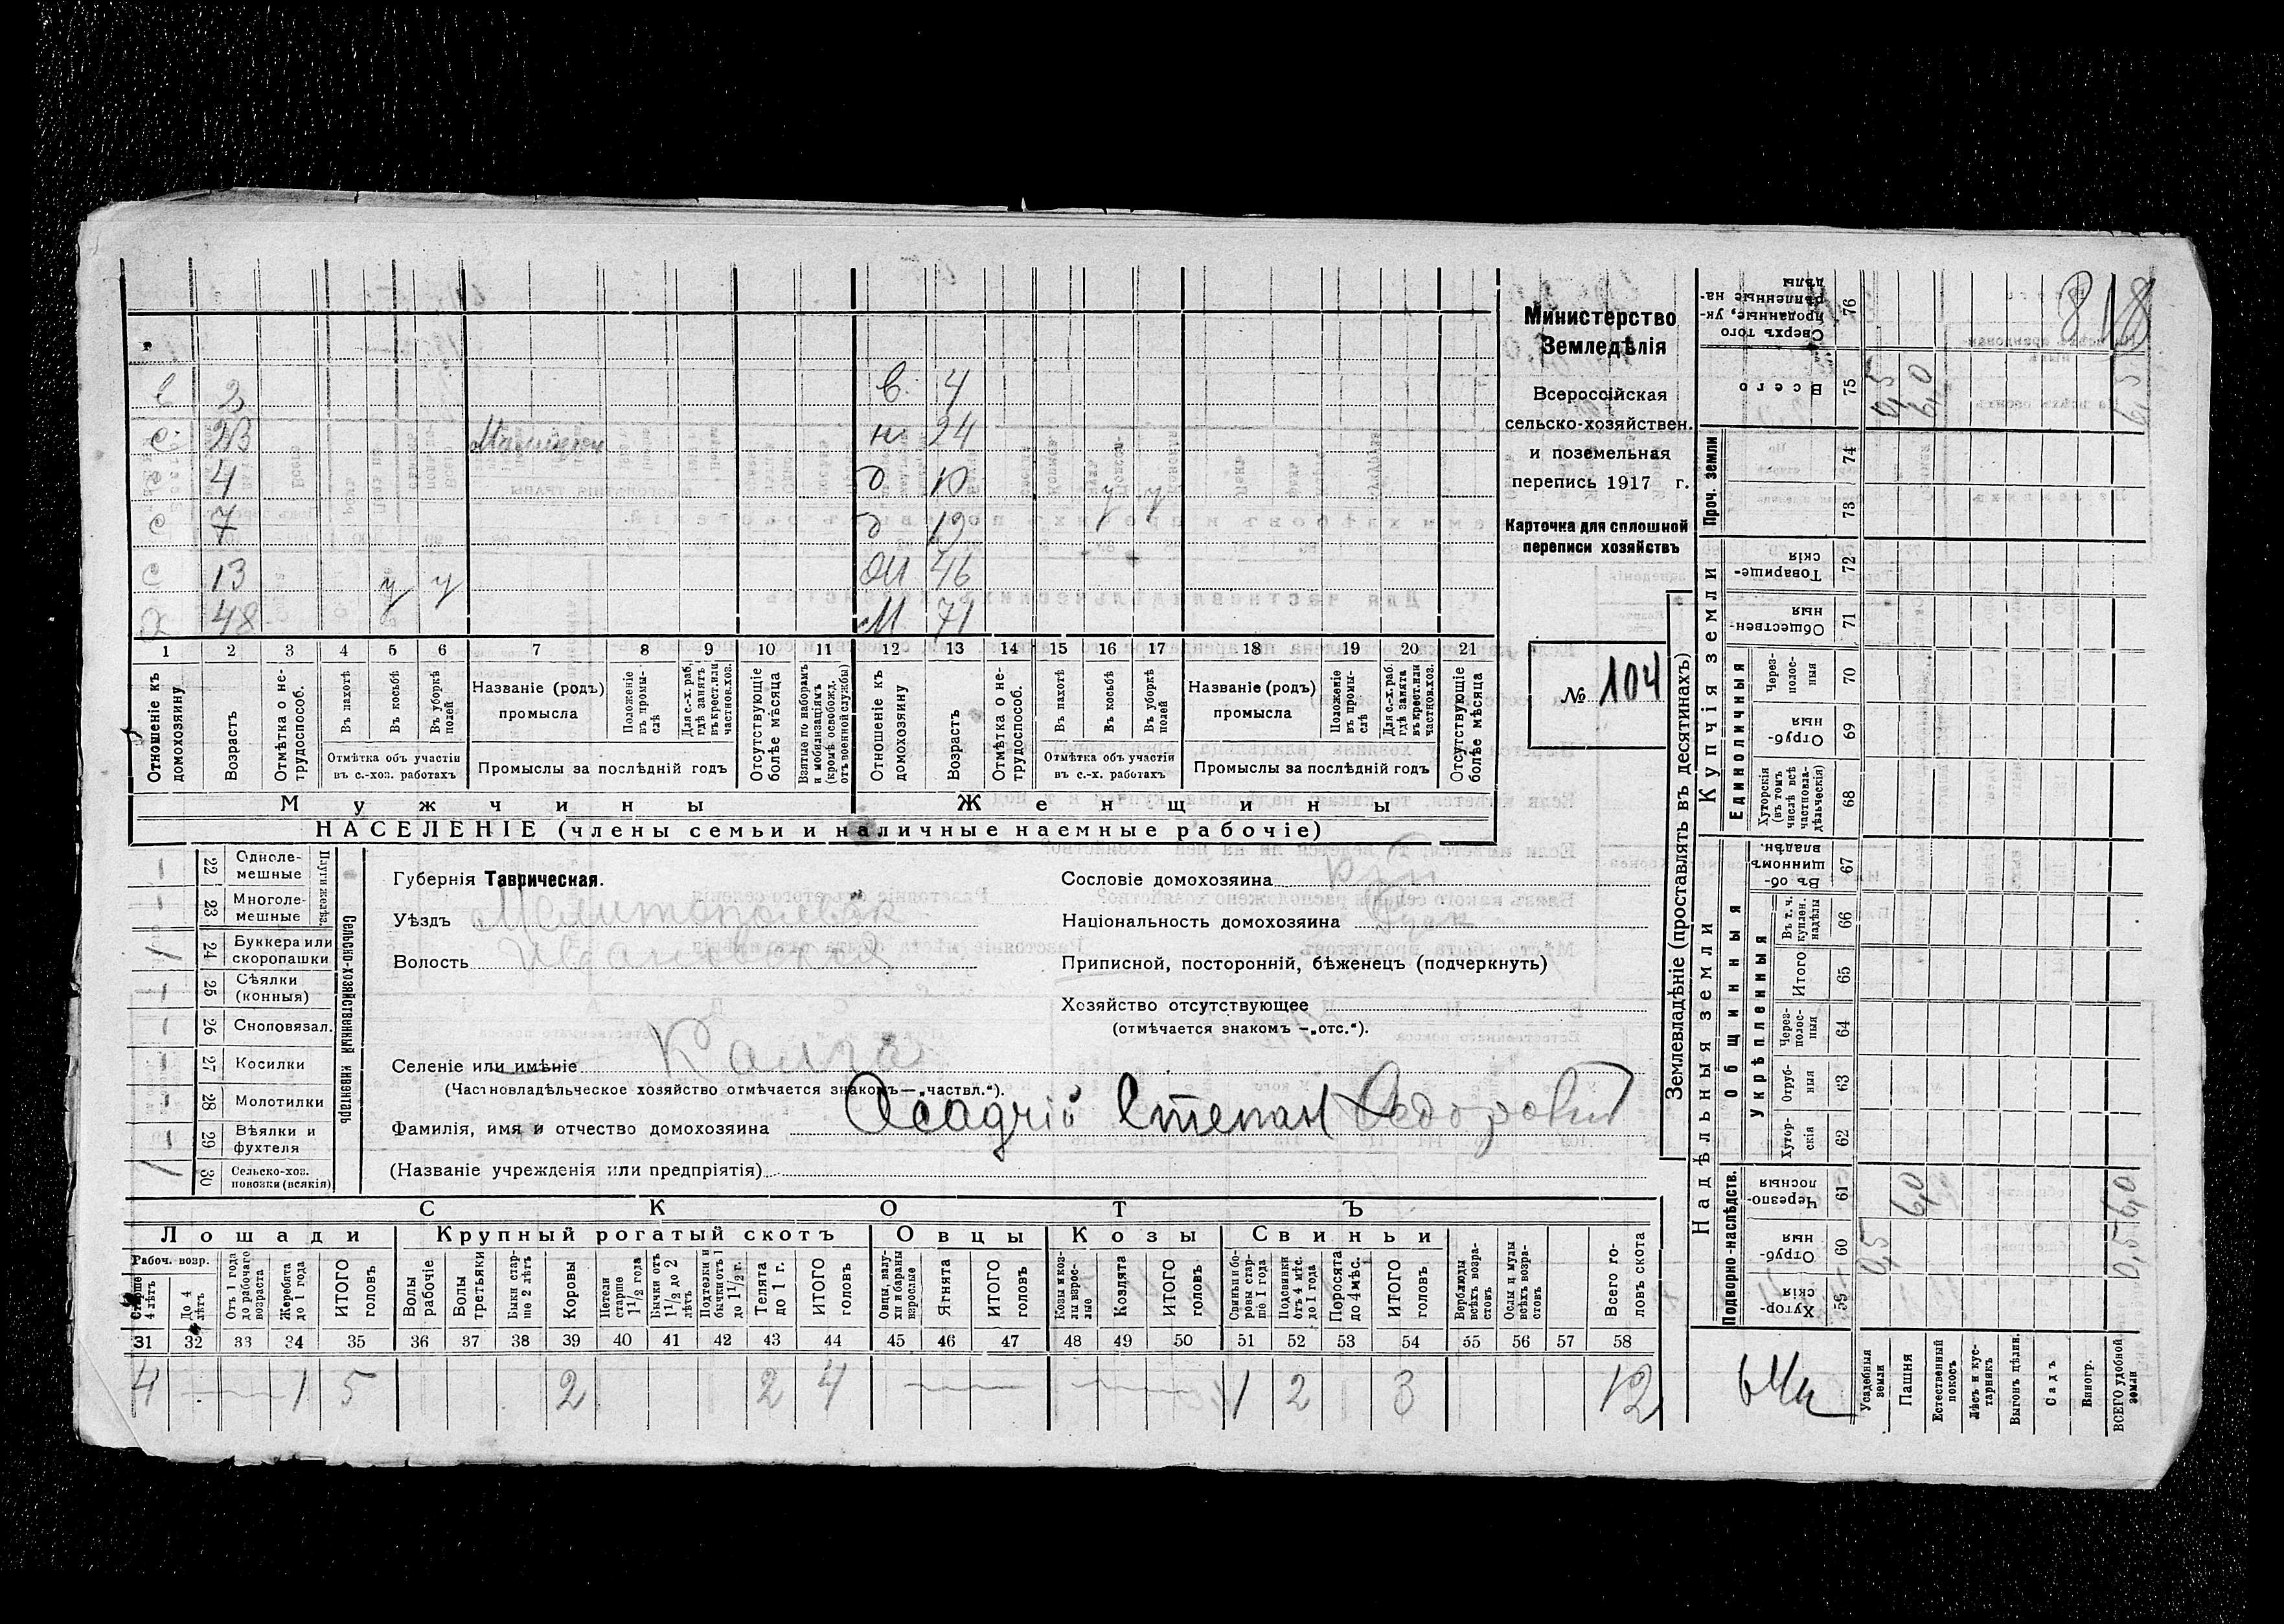 в 2 в. 4
с. 23 Машинист н. 24
4 д 10 у у
с 7 д 19
с 13 у у ом 46
х 48 м 71
1 2 3 4 5 6 7 8 9 10 11 12 13 14 15 16 17 18 19 20 21
Отношеніе къ домохозяину
Возрастъ
Отмѣтка о нетрудоспособ.
Въ пахотѣ
Въ косьбѣ
Въ уборкѣ полей
Отмѣтка объ участіи
въ с.-хоз. работахъ
Названіе (родъ)
промысла
Положеніе въ промыслѣ
Для с.-х. раб. гдѣ занятъ въ крест. или частнов. хоз.
Промыслы за послѣдній годъ
Отсутствующіе болѣе мѣсяца
Взятые по наборамъ и мобилизаціямъ (кромѣ освобожд. отъ военной службы)
Отношеніе къ домохозяину
Возрастъ
Отмѣтка о нетрудоспособ.
Въ пахотѣ
Въ косьбѣ
Въ уборкѣ полей
Отмѣтка объ участіи
въ с.-х. работахъ
Названіе (родъ)
промысла
Положеніе въ промыслѣ
Для с.-х. раб. гдѣ занята въ крест. или частнов. хоз.
Промыслы за послѣдній годъ
Отсутствующіе болѣе мѣсяца
Мужчины Женщины
НАСЕЛЕНІЕ (члены семьи и наличные наемные рабочіе)
Министерство
Земледѣлія
Всероссійская
сельско-хозяйствен.
и поземельная
перепись 1917 г.
Карточка для сплошной
переписи хозяйствъ
№ 104
22 Одноле-
мешные
23 Многоле-
мешные
1 24 Буккера или
скоропашки
25 Сѣялки
(конныя)
26 Сноповязал.
27 Косилки
28 Молотилки
29 Вѣялки и
фухтеля
1 30 Сельско-хоз.
повозки (всякія)
Плуги желѣз.
Сельско-хозяйственный инвентарь
Губернія Таврическая.
Уѣздъ Мелитопольск
Волость Ивановская
Селеніе или имѣніе Калга
(Частновладѣльческое хозяйство отмѣчается знакомъ—„частвл.“).
Фамилія, имя и отчество домохозяина Осадчій Степан Федорович
(Названіе учрежденія или предпріятія)
Сословіе домохозяина
Національность домохозяина
Приписной, посторонній, бѣженецъ (подчеркнуть)
Хозяйство отсутствующее
(отмѣчается знакомъ —„отс.“).
СКОТЪ
Лошади Крупный рогатый скотъ Овцы Козы Свиньи
Рабоч. возр.
Старше 4 лѣтъ
До 4 лѣтъ
Отъ 1 года до рабочаго возраста
Жеребята до 1 года
ИТОГО головъ
Волы рабочіе
Волы третьяки
Быки старше 2 лѣтъ
Коровы
Нетели старше 1 1/2 года
Бычки отъ 1 1/2 до 2 лѣтъ
Подтелки и бычки отъ 1 до 1 1/2 г.
Телята до 1 г.
ИТОГО головъ
Овцы, валухи и бараны взрослые
Ягнята
ИТОГО головъ
Козы и козлы взрослые
Козлята
ИТОГО головъ
Свиньи и боровы старше 1 года
Подсвинки отъ 4 мѣс. до 1 года
Поросята до 4 мѣс.
ИТОГО головъ
Верблюды всѣхъ возрастовъ
Ослы и мулы всѣхъ возрастовъ
Всего головъ скота
31 32 33 34 35 36 37 38 39 40 41 42 43 44 45 46 47 48 49 50 51 52 53 54 55 56 57 58
4 1 5 2 2 4 1 2 3 12
Землевладѣніе (проставлять въ десятинахъ)
Надѣльныя земли Купчія земли Проч. земли
Подворно-наслѣдств. Общинныя Единоличныя
Укрѣпленныя
Хуторскія 59
Отрубныя 60
Черезполосныя 61
Хуторскія 62
Отрубныя 63
Черезполосныя 64
Итого 65
Въ т. ч. куплен. надѣлы 66
Въ общинномъ владѣн. 67
Хуторскія (въ томъ числѣ всѣ частновладѣльческія) 68
Отрубныя 69
Черезполосныя 70
Общественныя 71
Товарищескія 72
73
74
Всего 75
Сверхъ того проданные, укрѣпленные надѣлы 76
Усадебныя земли 0,5 0,5
Пашня 6,0 6,0
Естественный покосъ
Лѣсъ и кустарникъ
Выгонъ цѣлин.
Садъ
Виногр.
ВСЕГО удобной земли 0,5 6,0 6,5
818